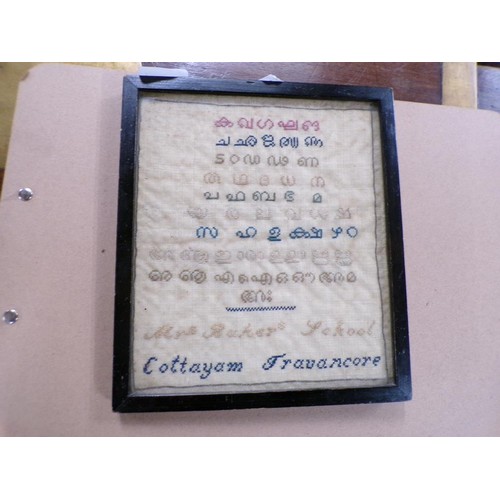 ക ഖ ഗ ഘ ങ
ച ഛ ജ ഝ ഞ
ട ഠ ഡ ഢ ണ
ത ഥ ദ ധ ന
പ ഫ ബ ഭ മ
യ ര ല വ ശ ഷ
സ ഹ ള ക്ഷ ഴ റ
അ ആ ഇ ൟ ഉ
എ ഐ ഒ ഔ അം
അഃ
Mrs Baker's School
Cottayam Travancore